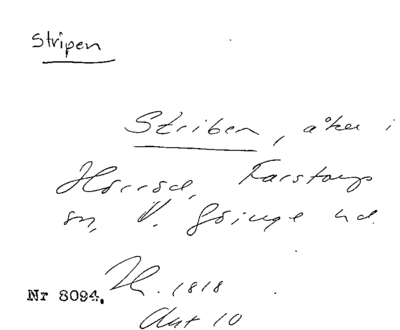 Stripen
Striben, åker i
Hörröd, Färstorps
sn, V. Göinge hd.
Nr 8094. LH. 1818
Akt 10